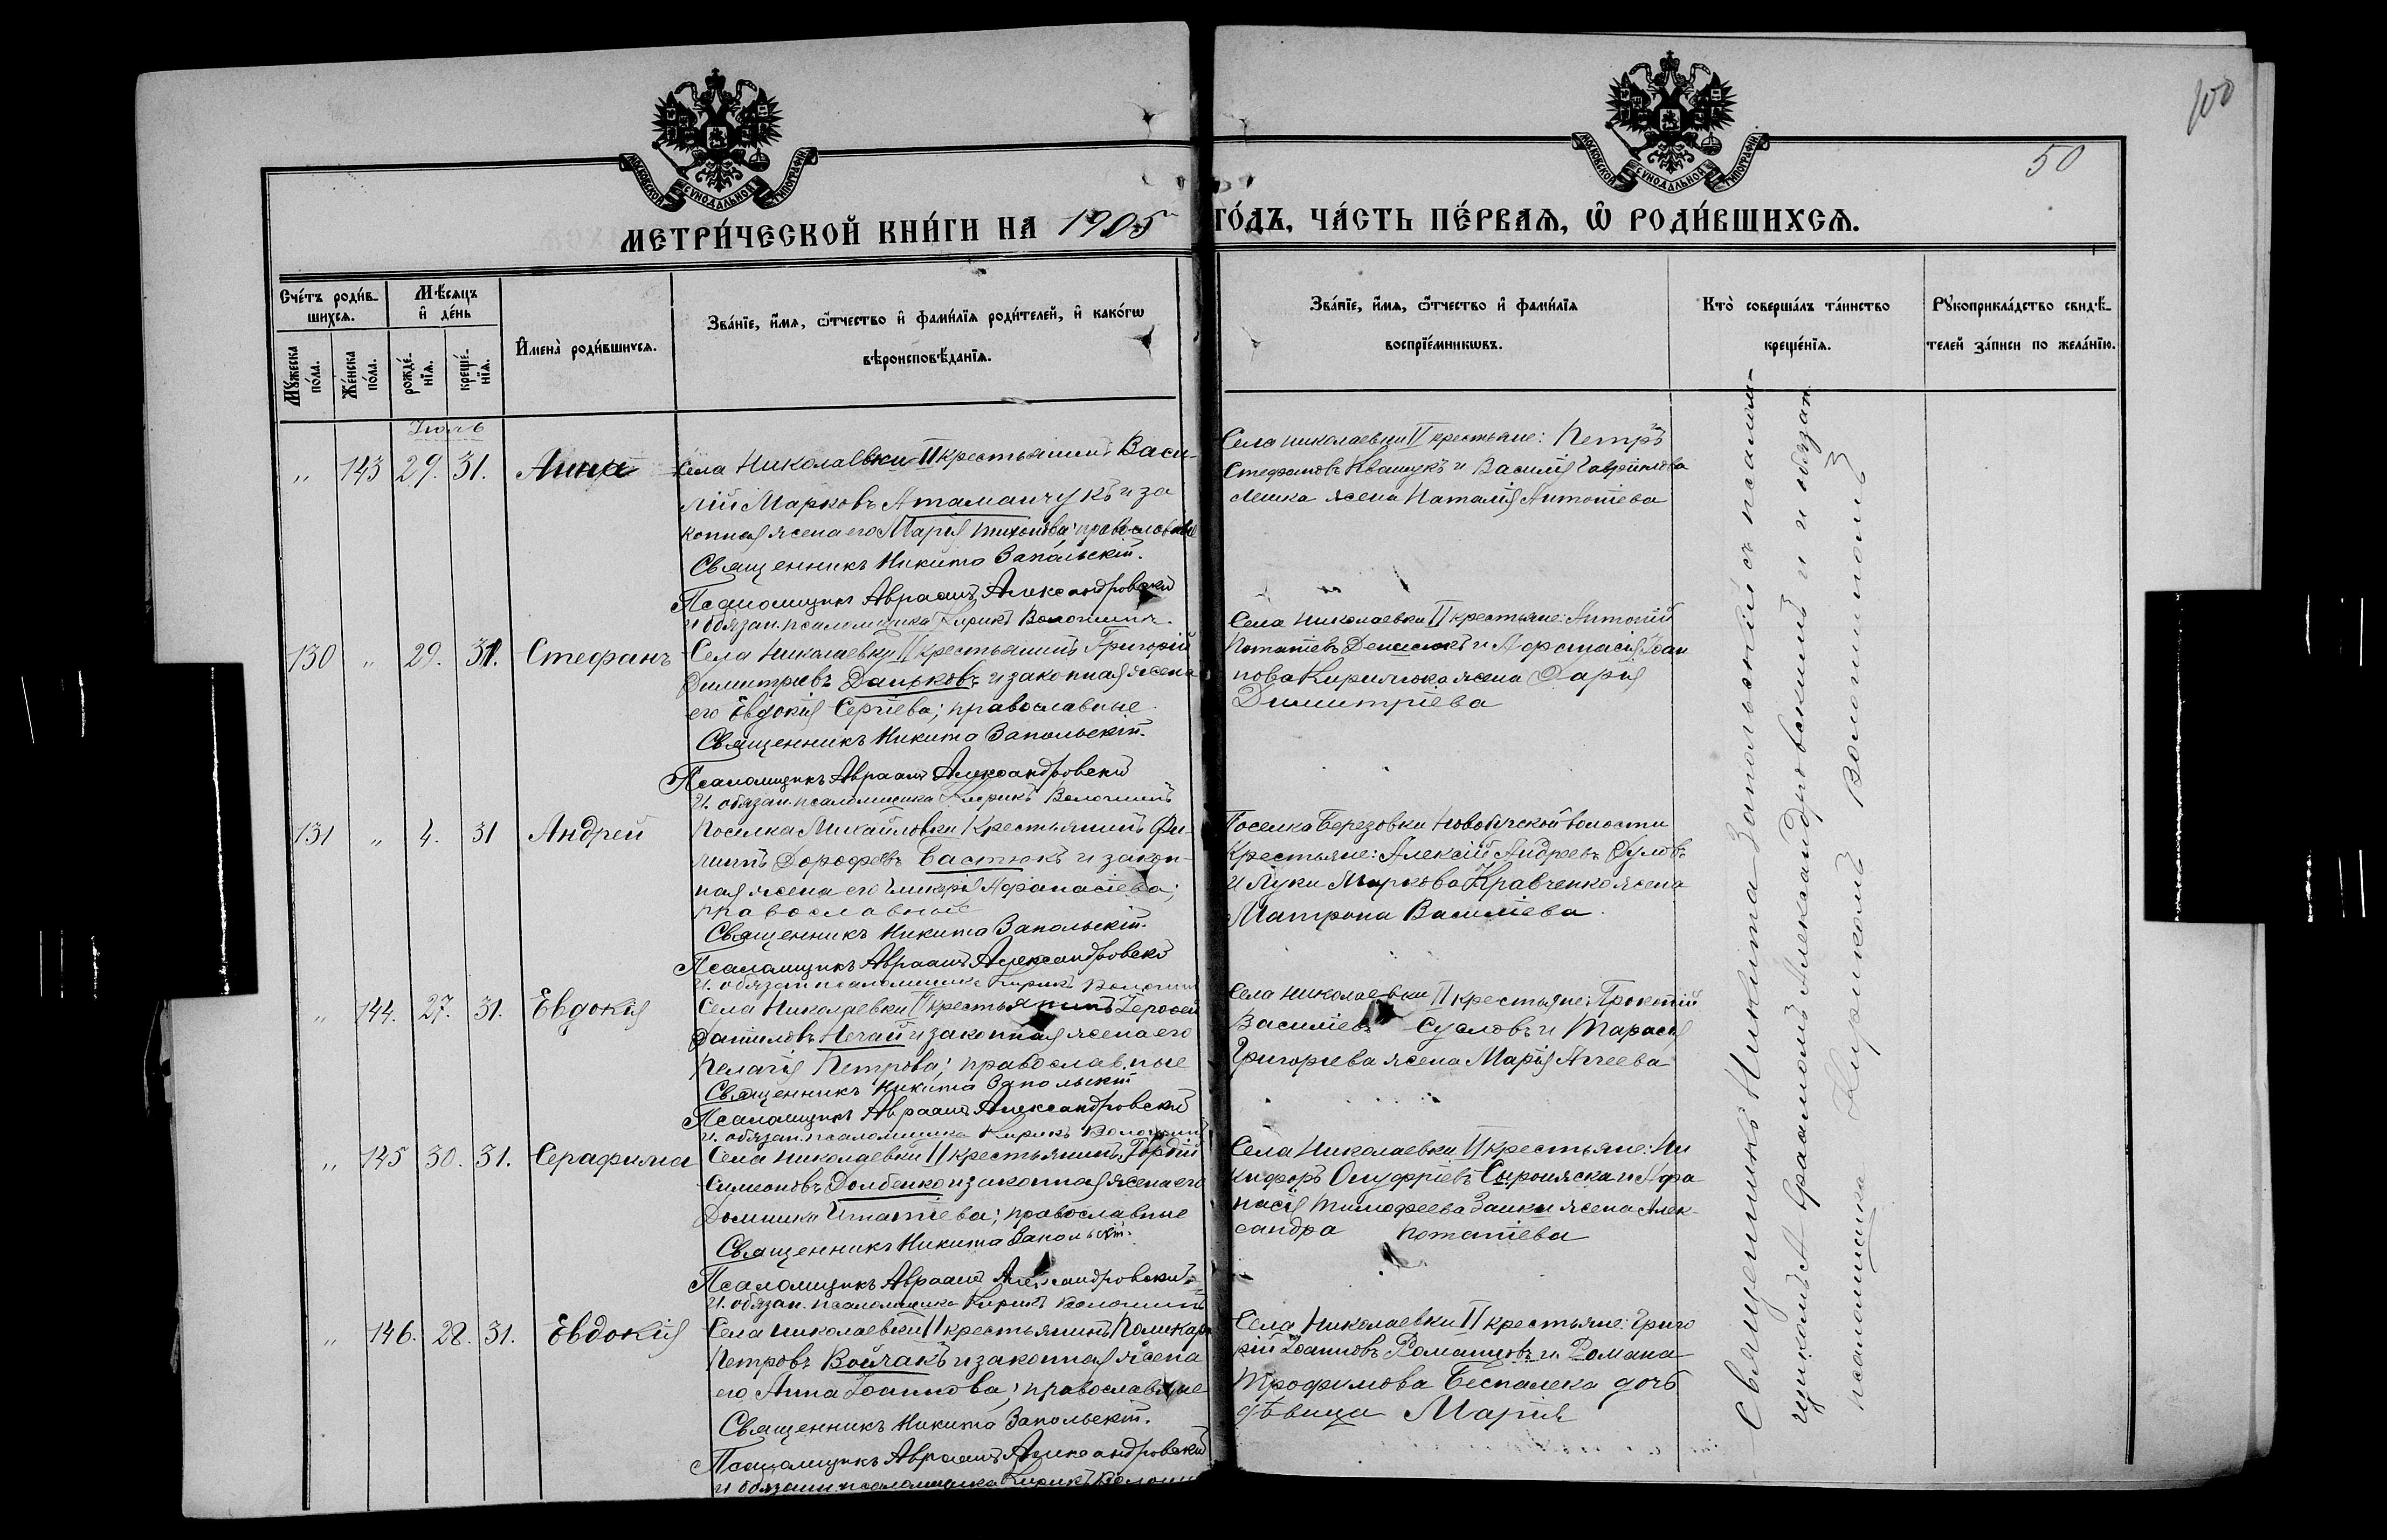 100
50
МОСКОВСКОЙ СѴНОДАЛЬНОЙ ТИПОГРАФІИ
МОСКОВСКОЙ СѴНОДАЛЬНОЙ ТИПОГРАФІИ
МЕТРИ́ЧЕСКОЙ КНИ́ГИ НА 1905 ГО́ДЪ, ЧА́СТЬ ПЕ́РВАѦ, Ѡ҆ РОДИ́ВШИХСѦ.
Сче́тъ роди́в-
шихсѧ.
Мѣ́сѧцъ
и҆ де́нь
Мꙋ́жеска
по́ла.
Же́нска
по́ла.
рожде́-
нїѧ.
креще́-
нїѧ.
И҆мена̀ роди́вшихсѧ.
Зва́нїе, и҆́мѧ, ѻ҆́тчество и҆ фами́лїѧ роди́телей, и҆ како́гѡ
вѣроисповѣ́данїѧ.
Зва́нїе, и҆́мѧ, ѻ҆́тчество и҆ фами́лїѧ
воспрїе́мникѡвъ.
Кто̀ соверша́лъ та́инство
креще́нїѧ.
Рꙋкоприкла́дство свидѣ́-
телей за́писи по жела́нїю.
Іюль
„ 143 29. 31. Анна
Села Николаевки II крестьянинъ Васи-
лій Марковъ Атаманчукъ и за
конная жена его Марія Тихонова; православные
Священникъ Никита Запольскій.
Псаломщикъ Авраамъ Александровскій
и обязан. псаломщика Кирикъ Волошинъ.
Села Николаевки II крестьяне: Петръ
Стефановъ Квашукъ и Василія Гавріилова
жена Наталія Антоніева
130 „ 29. 31. Стефанъ
Села Николаевки II крестьянинъ Григорій
Димитріевъ Даньковъ и законная жена
его Евдокія Сергіева; православные
Священникъ Никита Запольскій.
Псаломщикъ Авраамъ Александровскій
И. обязан. псаломщика Кирикъ Волошинъ
Села Николаевки II крестьяне: Антоній
Потапіевъ Денисюкъ и Афанасія Іоан
нова Кирилюка жена Дарія
Димитріева
131 „ 4. 31 Андрей
Поселка Михайловки Крестьянинъ Фи-
липпъ Дорофеевъ Бастюкъ и закон-
ная жена его Гликерія Афанасіева;
православные
Священникъ Никита Запольскій.
Псаломщикъ Авраамъ Александровскій
И. обязан псаломщика Кирикъ Волошинъ
Поселка Березовки Новобугской волости
Крестьяне: Алексій Андреевъ Дуловъ
и Луки Маркова Кравченко жена
Матрона Василіева.
„ 144. 27. 31. Евдокія
Села Николаевки II крестьянинъ Іерофей
Даниловъ Нечай и законная жена его
Пелагія Петрова; православные
Священникъ Никита Запольскій
Псаломщикъ Авраамъ Александровскій
И. обязан. псаломщика Кирикъ Волошинъ
Села Николаевки II крестьяне:
Василіевъ Сусловъ и Тарасія
Григорьева жена Марія Аггеева
„ 145 30. 31. Серафима
Села Николаевки II крестьянинъ Гордій
Симеоновъ Долбенко и законная жена его
Домника Игнатіева; православные
Священникъ Никита Запольскій.
Псаломщикъ Авраамъ Александровскій
И. обязан. псаломщика Кирикъ Волошинъ
Села Николаевки II крестьяне: Ни
кифоръ Онуфріевъ Сыроижска и Афа-
насія Тимофеева Заики жена Алек-
сандра Потапіева
„ 146. 28. 31. Евдокія
Села Николаевки II крестьянинъ Поликарпъ
Петровъ Войчакъ и законная жена
его Анна Іоаннова; православные
Священникъ Никита Запольскій.
Псаломщикъ Авраамъ Александровскій
и обязанн псаломщика Кирикъ Волошинъ
Села Николаевки II крестьяне: Григо
рій Іоанновъ Романцовъ и Романа
Трофимова Беспалека дочь
дѣвица Марія
Священникъ Никита Запольскій съ псалом-
щикомъ Авраамомъ Александровскимъ и и обязан
псаломщика Кирикомъ Волошиномъ